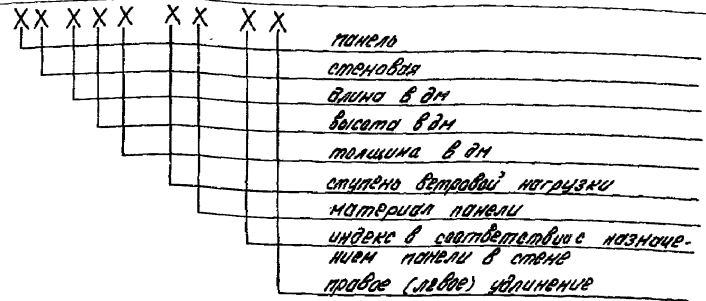 XX XXX XX XX
панель
стеновая
длина в дм
высота в дм
толщина в дм
ступень ветровой нагрузки
материал панели
индекс в соответствии с назначе-
нием панели в стене
правое (левое) удлинение